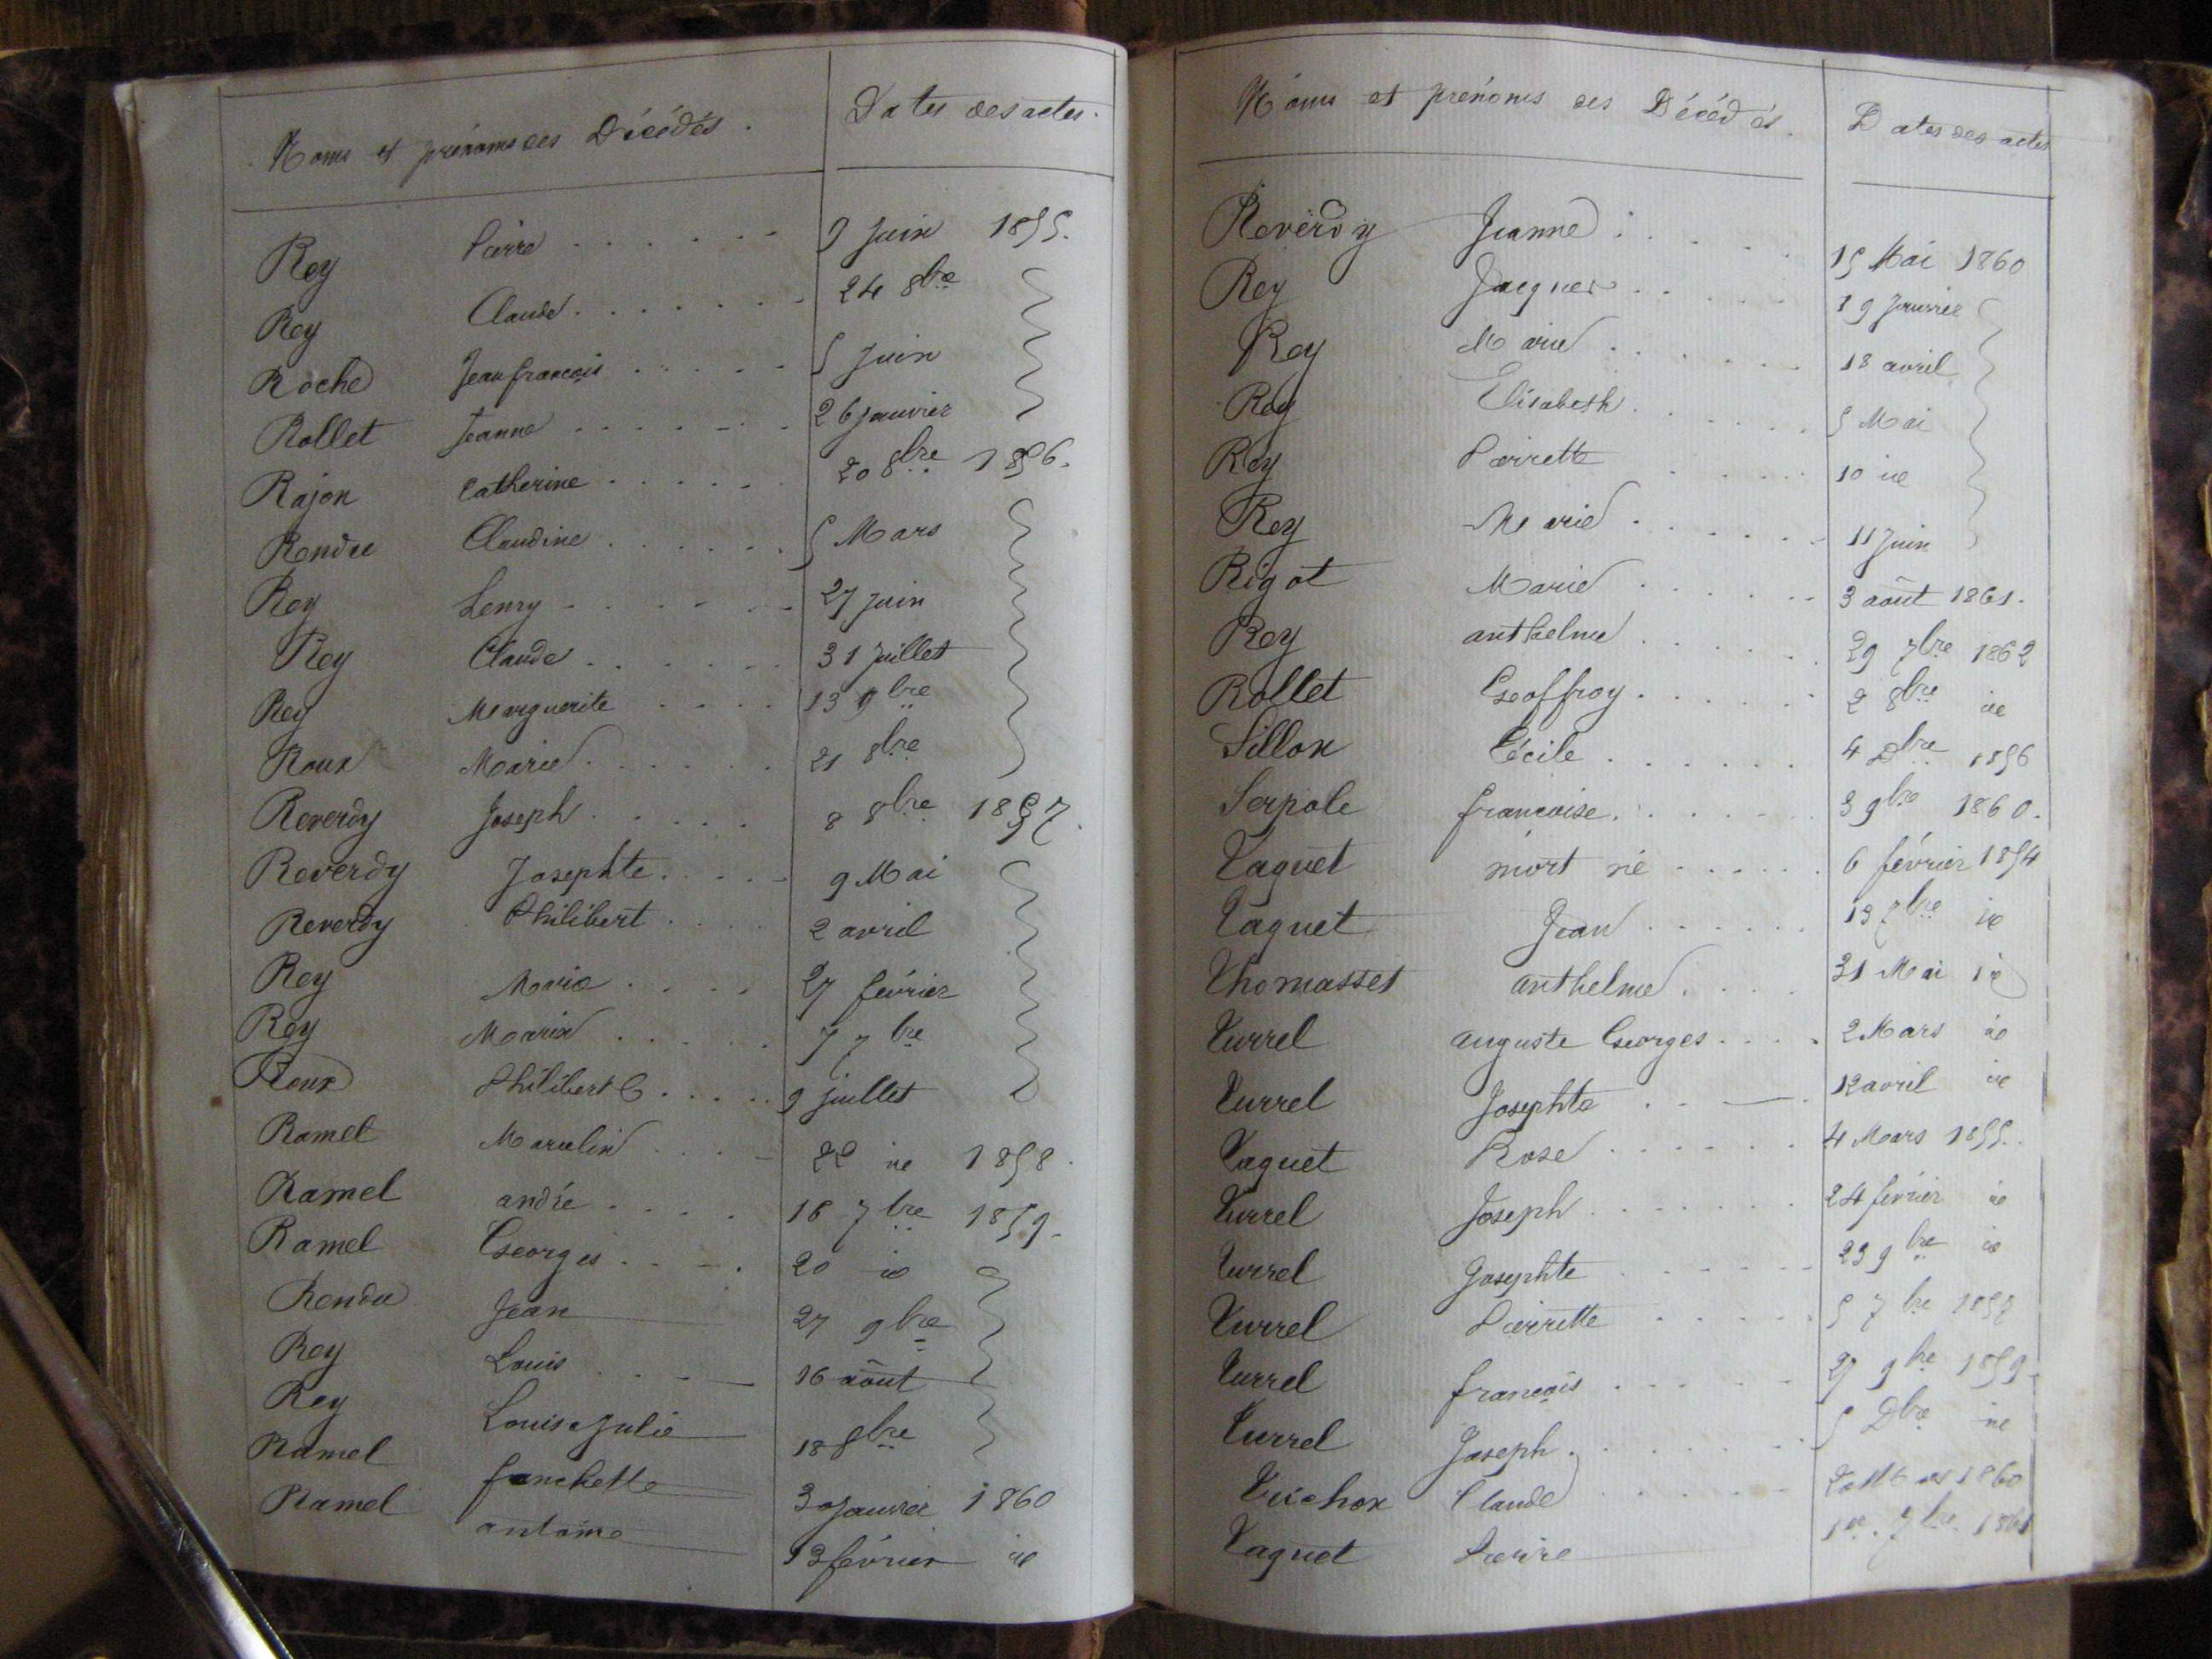 Noms et prénoms des Décédés. Dates des actes.
Rey Pierre 9 Juin 1855.
Rey Claude 24 8bre
Roche Jean françois 5 Juin
Rollet Jeanne 26 janvier
Rajon Catherine 20 8bre 1856.
Rendu Claudine 5 Mars
Rey Lemy 27 juin
Rey Claude 31 Juillet
Rey Marguerite 13 9bre
Roux Marie 21 8bre
Reverdy Joseph 8 8bre 1857.
Reverdy Josephte 9 Mai
Reverdy Philibert 2 avril
Rey Marie 27 février
Rey Marie 7 7bre
Roux Philibert C 9 juillet
Ramel Marcelin 22 id 1858.
Ramel andré 16 7bre 1859.
Ramel Georges 20 id
Rendu Jean 27 9bre
Rey Louis 16 août
Rey Louise Julie 18 8bre
Ramel fanchette 30 Janvier 1860
Ramel antoine 13 février id
Noms et prénoms des Décédés. Dates des actes
Reverdy Jeanne 15 Mai 1860
Rey Jacques 19 Janvier
Rey Marie 18 avril
Rey Elisabeth 5 Mai
Rey Pierrette 10 id
Rey Marie 11 Juin
Rigot Marie 3 août 1861.
Rey anthelme 29 7bre 1862
Rollet Geoffroy 2 8bre id
Sillon Cécile 4 Dbre 1856
Serpole francoise 3 9bre 1860.
Taguet mort né 6 février 1854
Taguet Jean 13 7bre id
Thomasset anthelme 31 Mai id
Turrel auguste Georges 2 Mars id
Turrel Josephte 12 avril id
Taguet Rose 4 Mars 1855.
Turrel Joseph 24 février id
Turrel Josephte 23 9bre id
Turrel Pierrette 5 7bre 1857
Turrel françois 27 9bre 1859
Turrel Joseph 5 Dbre id
Truchon Claude 1860
Taguet Pierre 1er 7bre 1861